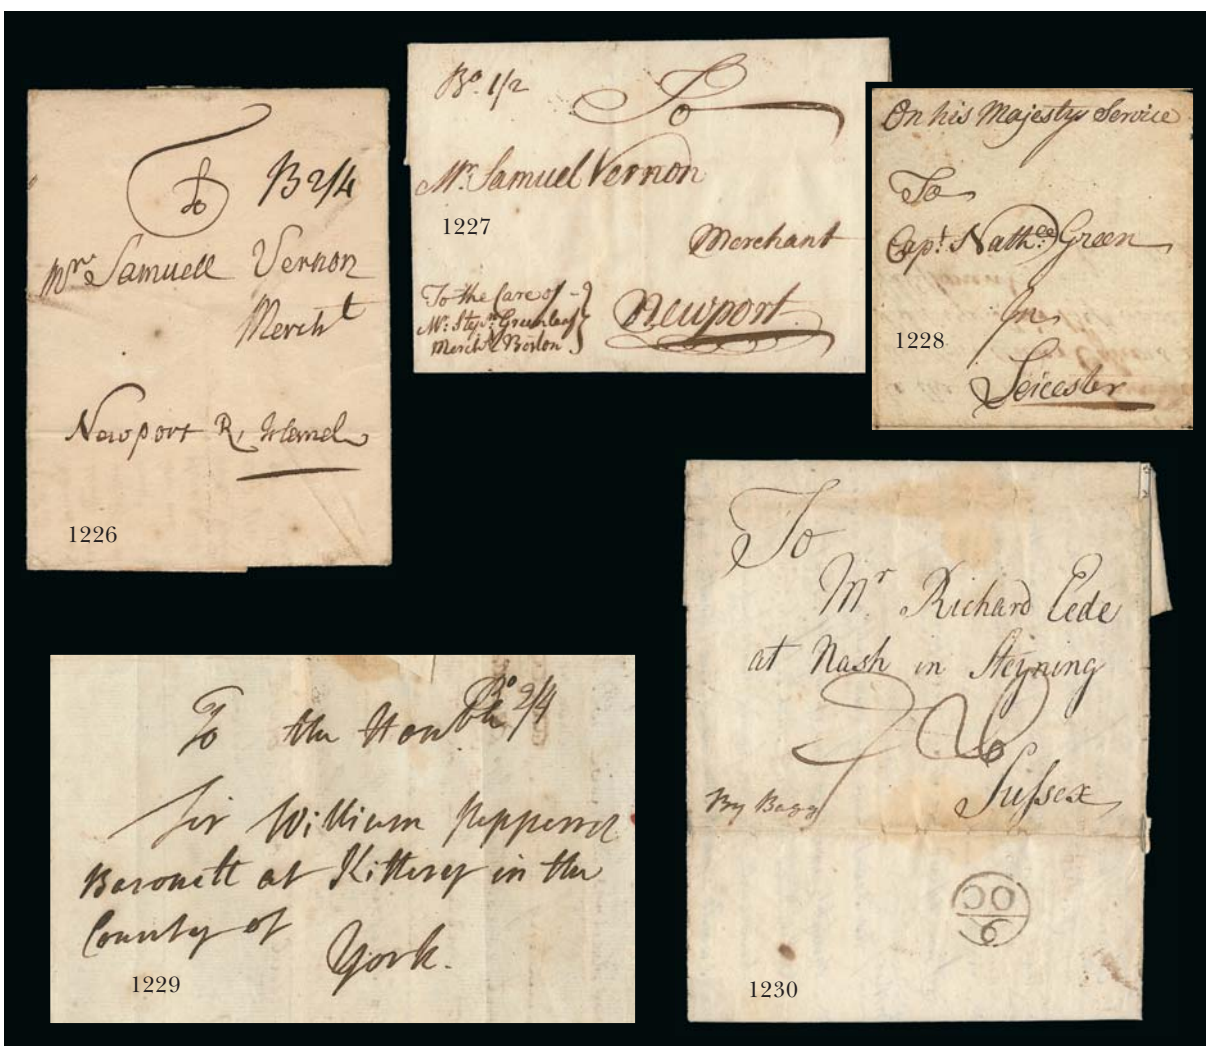 To B 2/4
Mr. Samuell Vernon
Mercht
Newport R, Island
1226
Bo. 1/2 To
Mr. Samuel Vernon
1227
Merchant
To the Care of
Mr. Stepn. Greenleaf
Mercht. Boston
Newport
On his Majestys Service
To
Capt. Nathll. Green
In
1228
Leicester
To the Honble Bo 2/4
Sir William Pepperrel
Baronett at Kittery in the
County of
York.
1229
To
Mr Richard Eede
at Nash in Steyning
Sussex
By Bagg
OC
9
1230